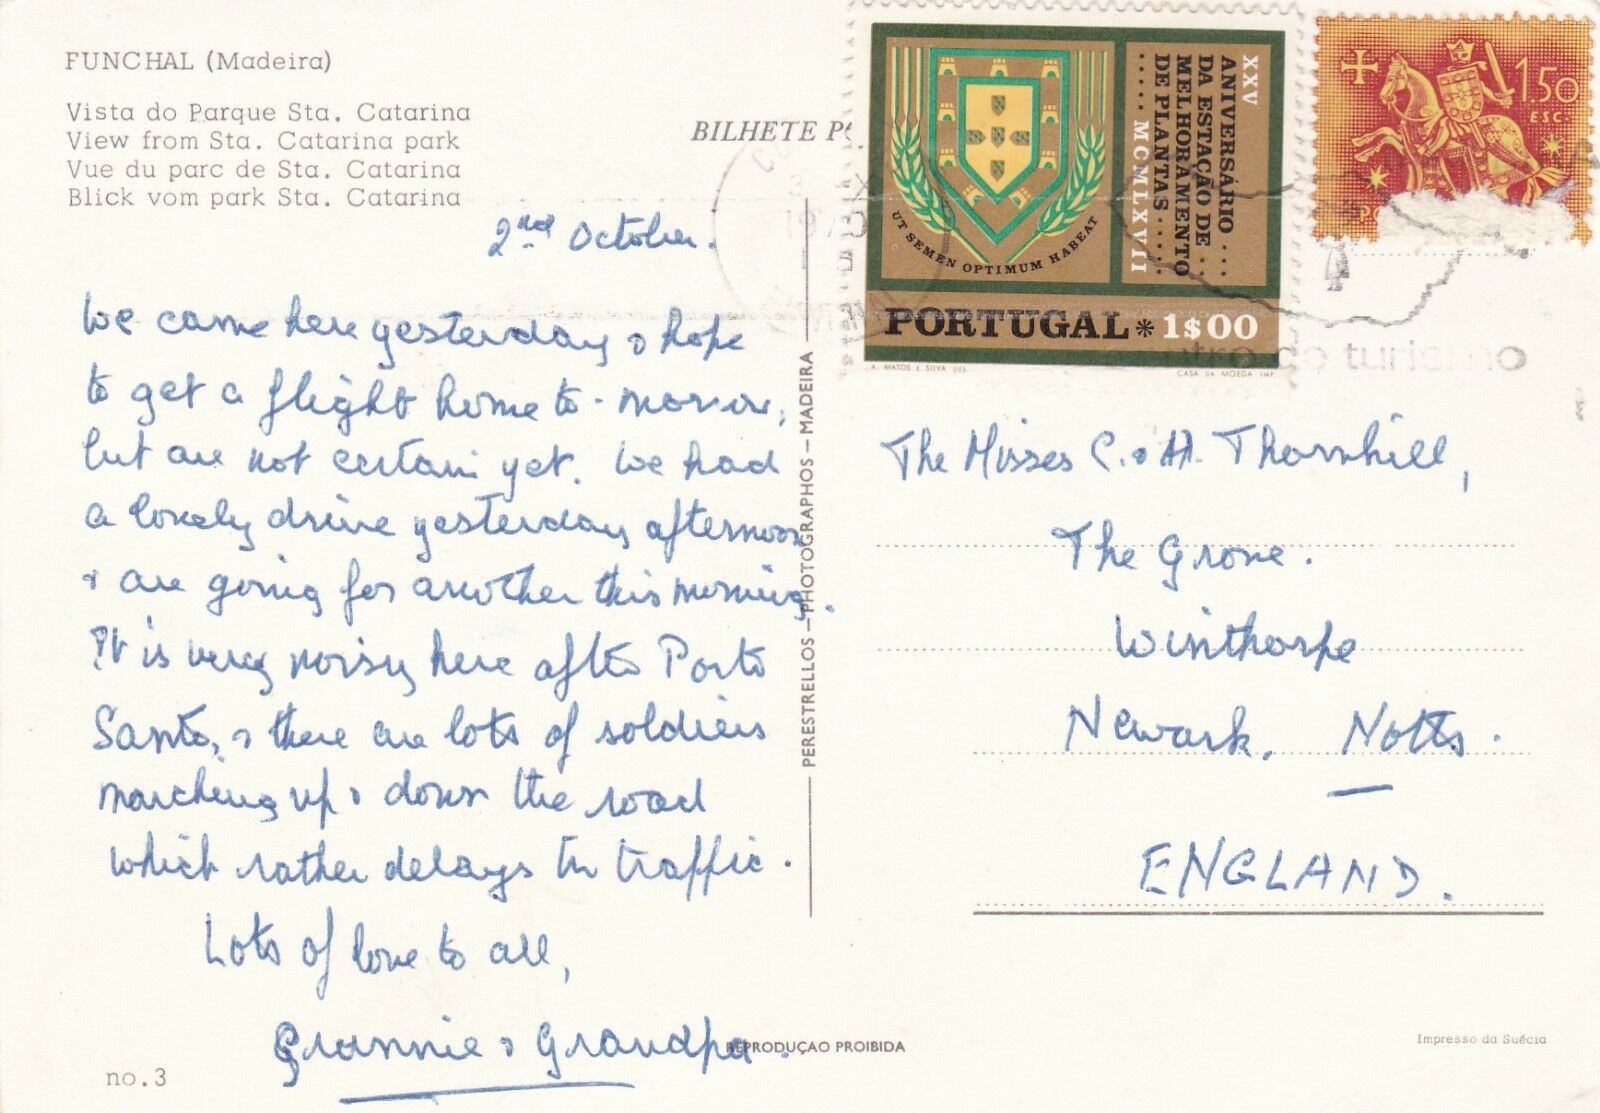 FUNCHAL (Madeira)
Vista do Parque Sta. Catarina
View from Sta. Catarina park
Vue du parc de Sta. Catarina
Blick vom park Sta. Catarina
BILHETE P
2nd October.
We came here yesterday & hope
to get a flight home to-morrow,
but are not certain yet. We had
a lovely drive yesterday afternoon
& are going for another this morning.
It is very noisy here after Porto
Santo, & there are lots of soldiers
marching up & down the road
which rather delays the traffic.
Lots of love to all,
Grannie & Grandpa.
no.3
PERESTRELLOS – PHOTOGRAPHOS – MADEIRA
REPRODUÇAO PROIBIDA
XXV
ANIVERSÁRIO . . .
DA ESTAÇÃO DE . .
MELHORAMENTO
DE PLANTAS . . . . .
. . . . . MCMLXVII
UT SEMEN OPTIMUM HABEAT
PORTUGAL * 1$00
A. MATOS E SILVA DES.
CASA DA MOEDA IMP.
1.50
ESC.
PO
1970
tro de turismo
The Misses C. & H. Thornhill,
The Grove.
Winthorpe
Newark. Notts.
ENGLAND.
Impresso da Suécia